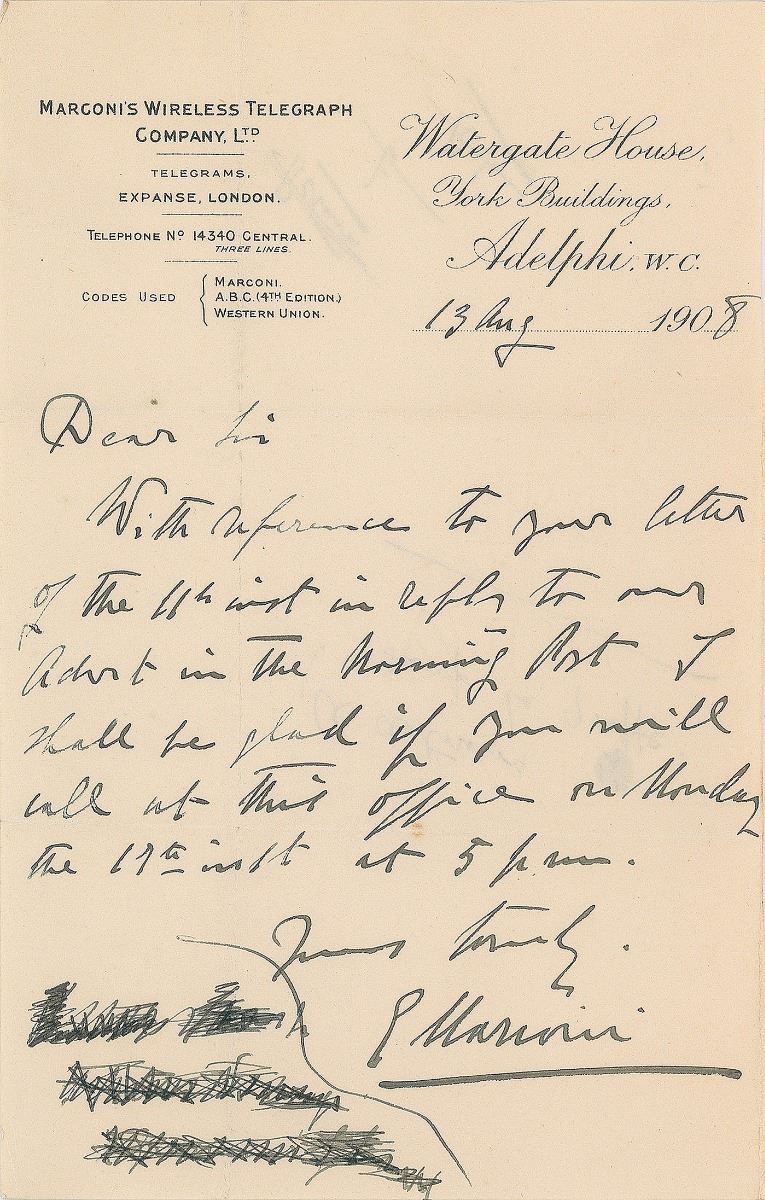 MARCONI'S WIRELESS TELEGRAPH
COMPANY, LTD
TELEGRAMS,
EXPANSE, LONDON.
TELEPHONE No 14340 CENTRAL.
THREE LINES.
CODES USED
MARCONI.
A.B.C. (4TH EDITION.)
WESTERN UNION.
Watergate House,
York Buildings,
Adelphi, W.C.
13 Aug 1908
Dear Sir
With reference to your letter
of the 11th inst in reply to our
Advert in the Morning Post I
shall be glad if you will
call at this office on Monday
the 17th inst at 5 p m.
Yours truly.
G Marconi